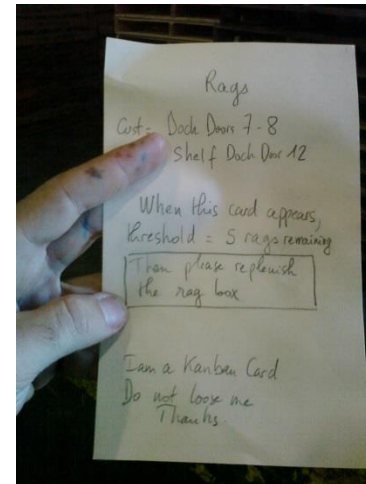 Rags
Cust - Dock Doors 7-8
Shelf Dock Door 12
When this card appears,
threshold = 5 rags remaining
Then please replenish
the rag box
I am a Kanban Card
Do not loose me
Thanks.